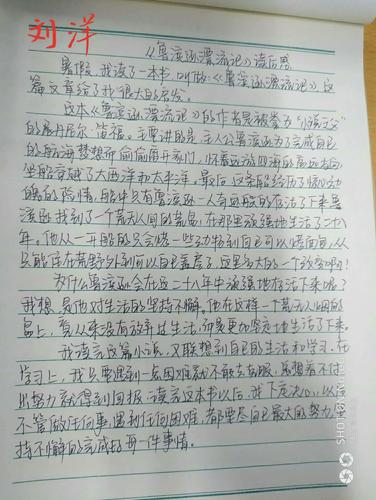 刘洋
《鲁滨逊漂流记》读后感
暑假,我读了一本书,叫做《鲁滨逊漂流记》,这
篇文章给了我很大的启发。
这本《鲁滨逊漂流记》的作者是被誉为“小说之父”
的丹尼尔·笛福。主要讲的是:主人公鲁滨逊为了完成自己
的航海梦想而偷偷离开家门,怀着远游四海的高远志向,
坐船穿越了大西洋和太平洋。最后,这条船经历了惊心动
魄的险情,船中只有鲁滨逊一人奇迹般的存活了下来。鲁
滨逊找到了一个荒无人烟的荒岛,在那里顽强地生活了二十八
年。他从一开始的只会烧一些到自己可以烤面包,从
只能住在荒野外到可以自己盖房子,这是多大的一个改变啊!
为什么鲁滨逊会在这二十八年中顽强地存活下来呢?
我想,是他对生活的坚持不懈。他在这样一个荒无人烟的
岛上,看从来没有放弃过生活,而是更加坚定地生活了下来。
我读完这篇小说,又联想到自己的生活和学习。在
学习上,我只要遇到一点困难就不敢去克服,总想着不付
出努力就得到回报。读完这本书以后,我下定决心,以后
不管做任何事,遇到任何困难,都要尽自己最大的努力,坚
持不懈的完成好每一件事情。